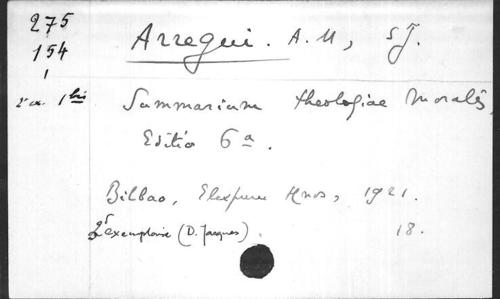 275
154
1
Arregui. A. M., S.J.
2e ex. 1 bis
Summarium theologiae Moralis,
Editio 6a.
Bilbao, Elexpuru Hnos, 1921.
2e exemplaire (D. Jacques). 18.